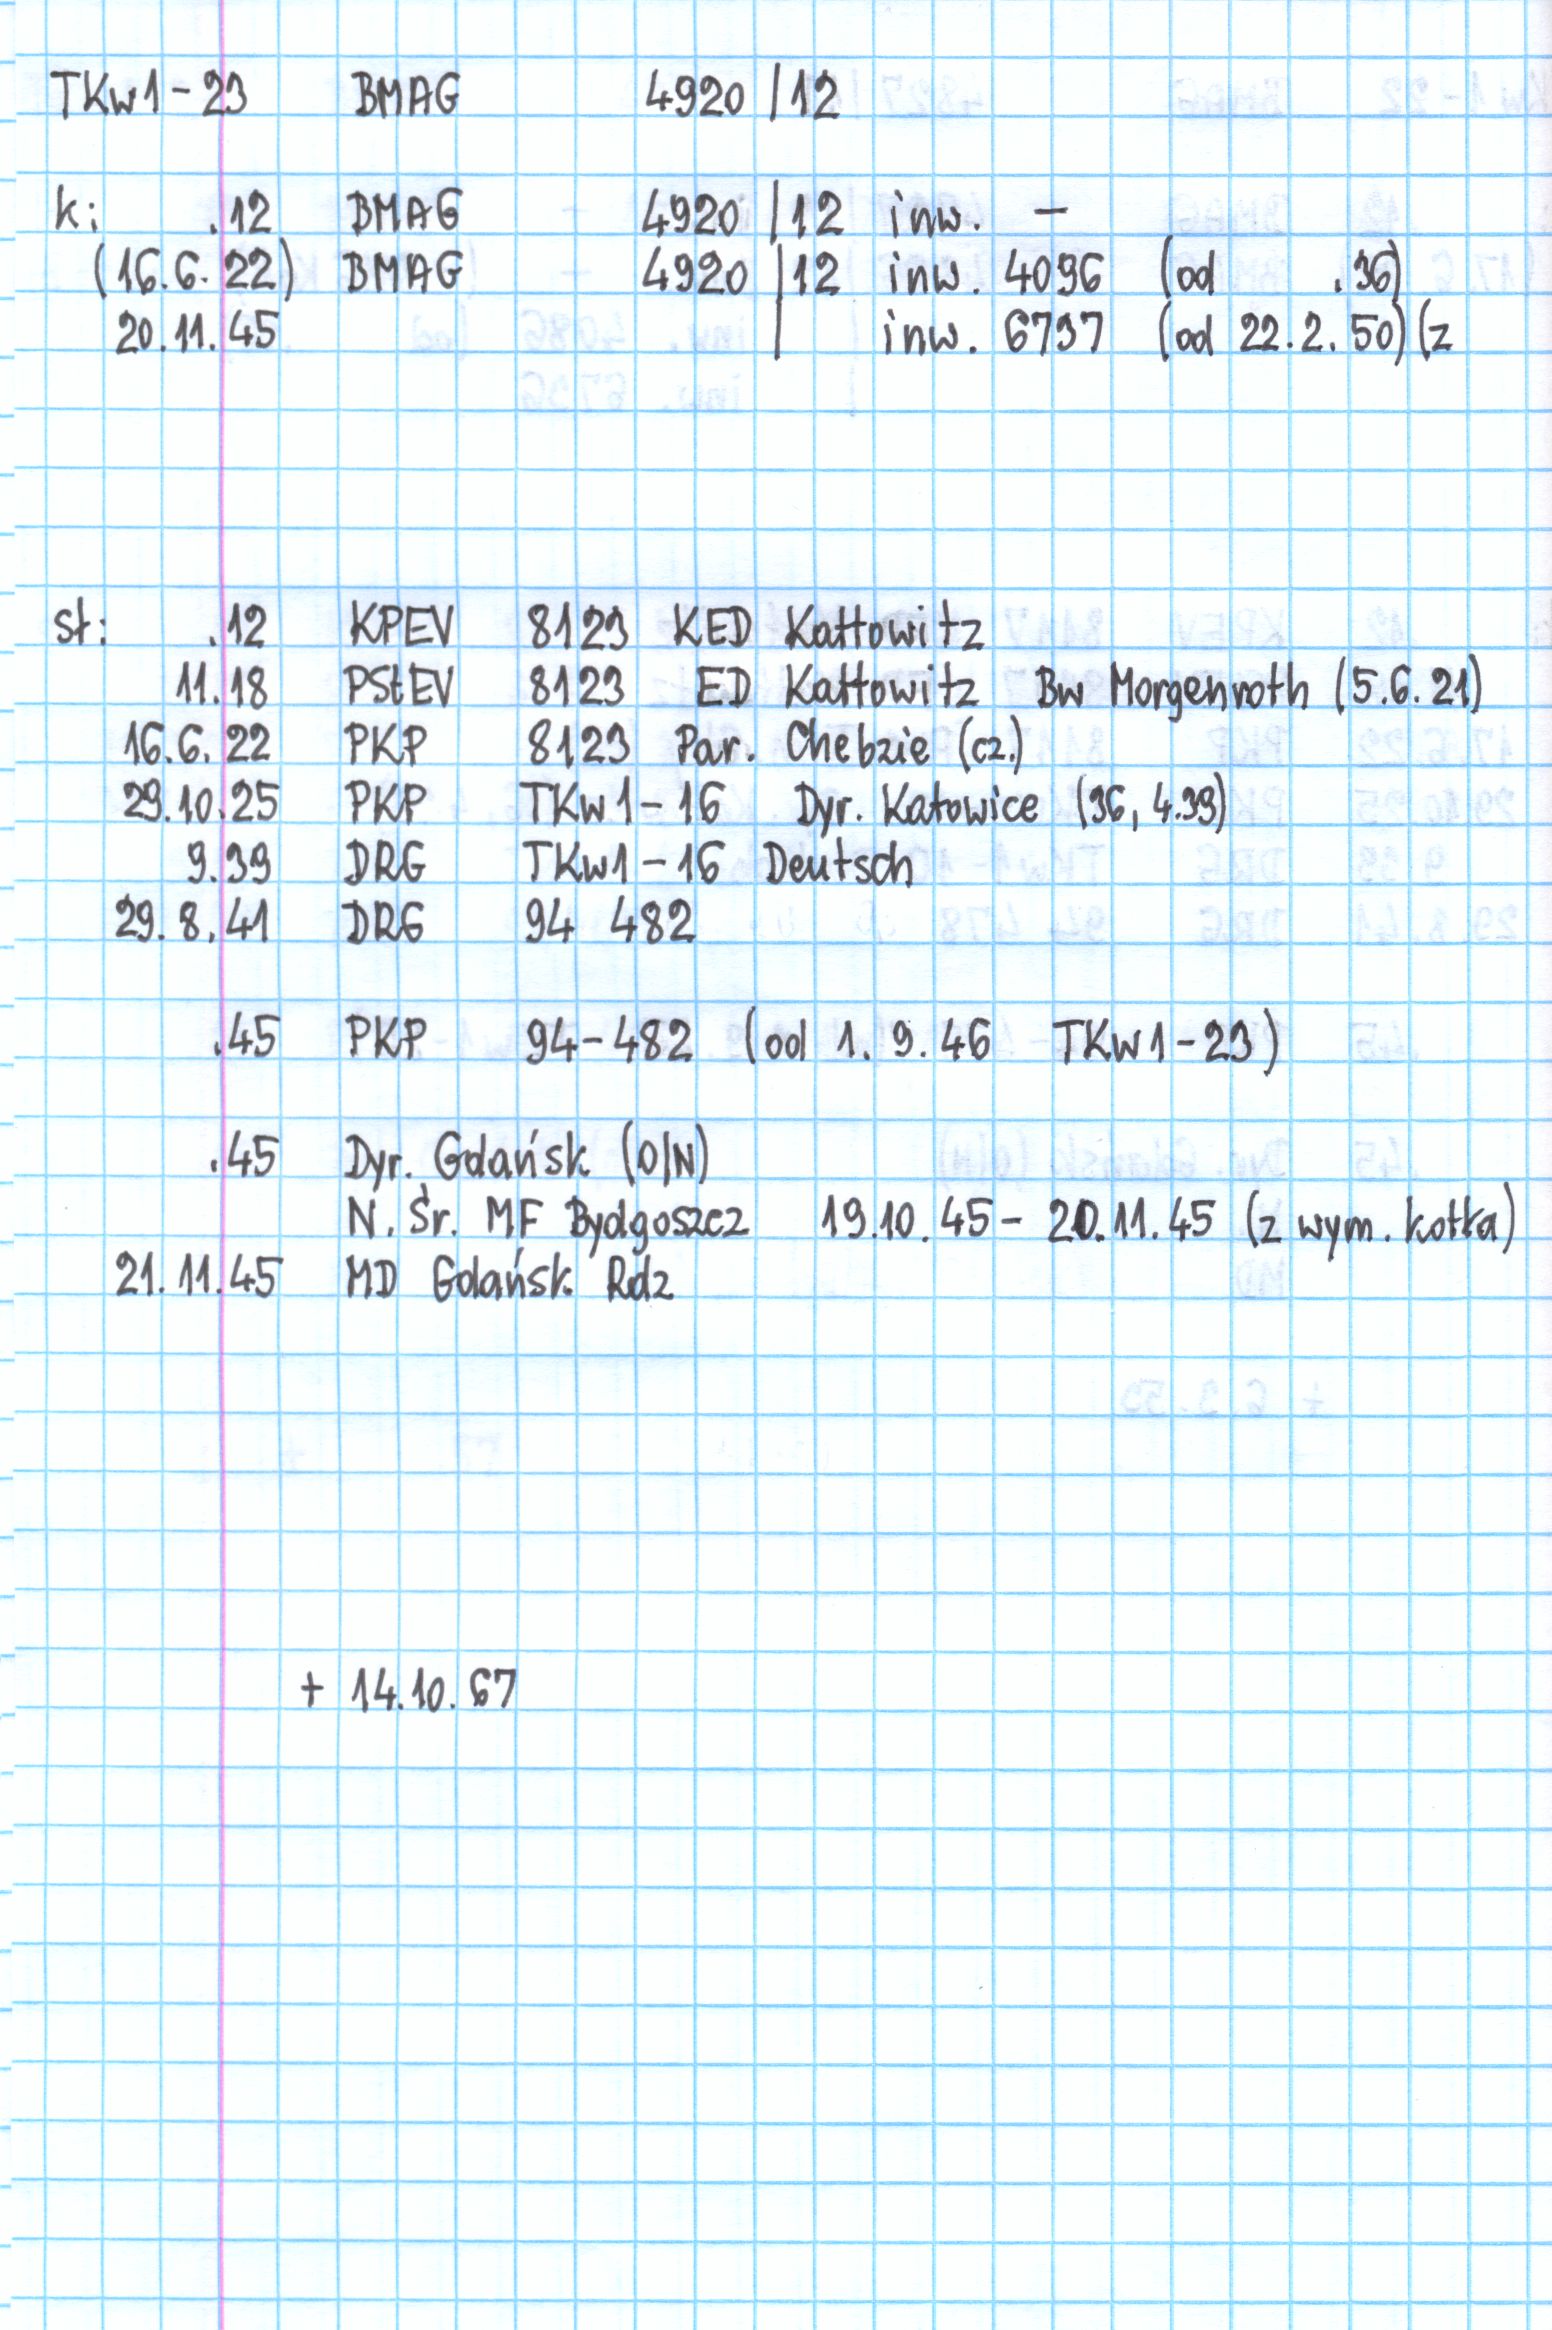 TKw1-23 BMAG 4920 /12
k: .12 BMAG 4920 /12 inw. -
(16.6.22) BMAG 4920 /12 inw. 4096 (od .36)
20.11.45 / inw. 6737 (od 22.2.50) (z
st: .12 KPEV 8123 KED Kattowitz
11.18 PStEV 8123 ED Kattowitz Bw Morgenroth (5.6.21)
16.6.22 PKP 8123 Par. Chebzie (cz.)
29.10.25 PKP TKw1-16 Dyr. Katowice (36, 4.39)
9.39 DRG TKw1-16 Deutsch
29.8.41 DRG 94 482
.45 PKP 94-482 (od 1.9.46 TKw1-23)
.45 Dyr. Gdańsk (O/N)
N.Śr. MF Bydgoszcz 19.10.45 - 20.11.45 (z wym. kotła)
21.11.45 MD Gdańsk Rdz
+ 14.10.67